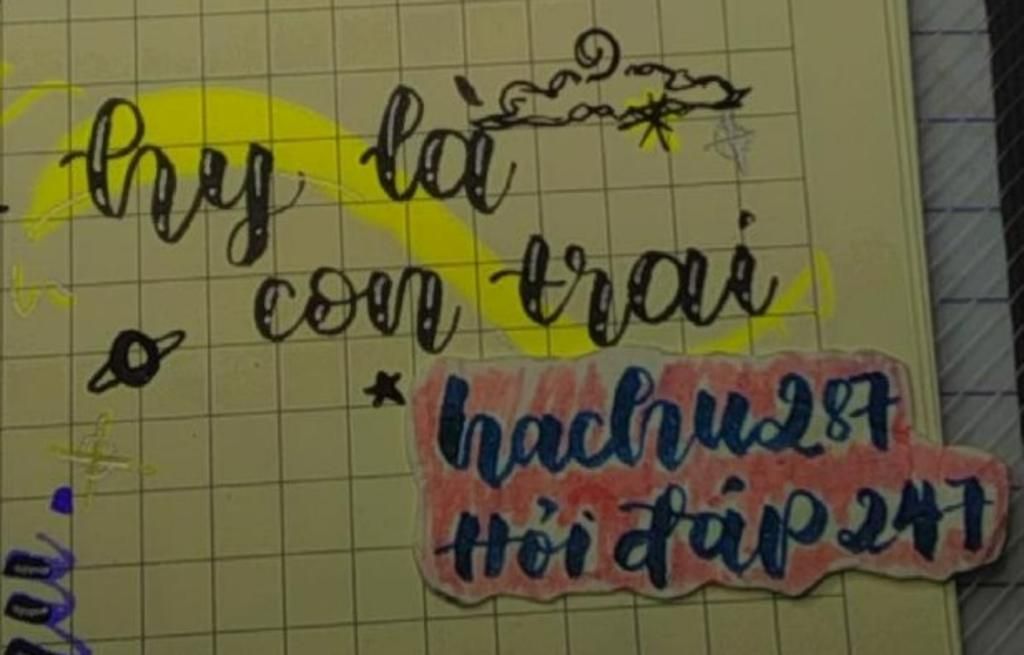 hy là
con trai
hachu287
Hỏi đáp 247